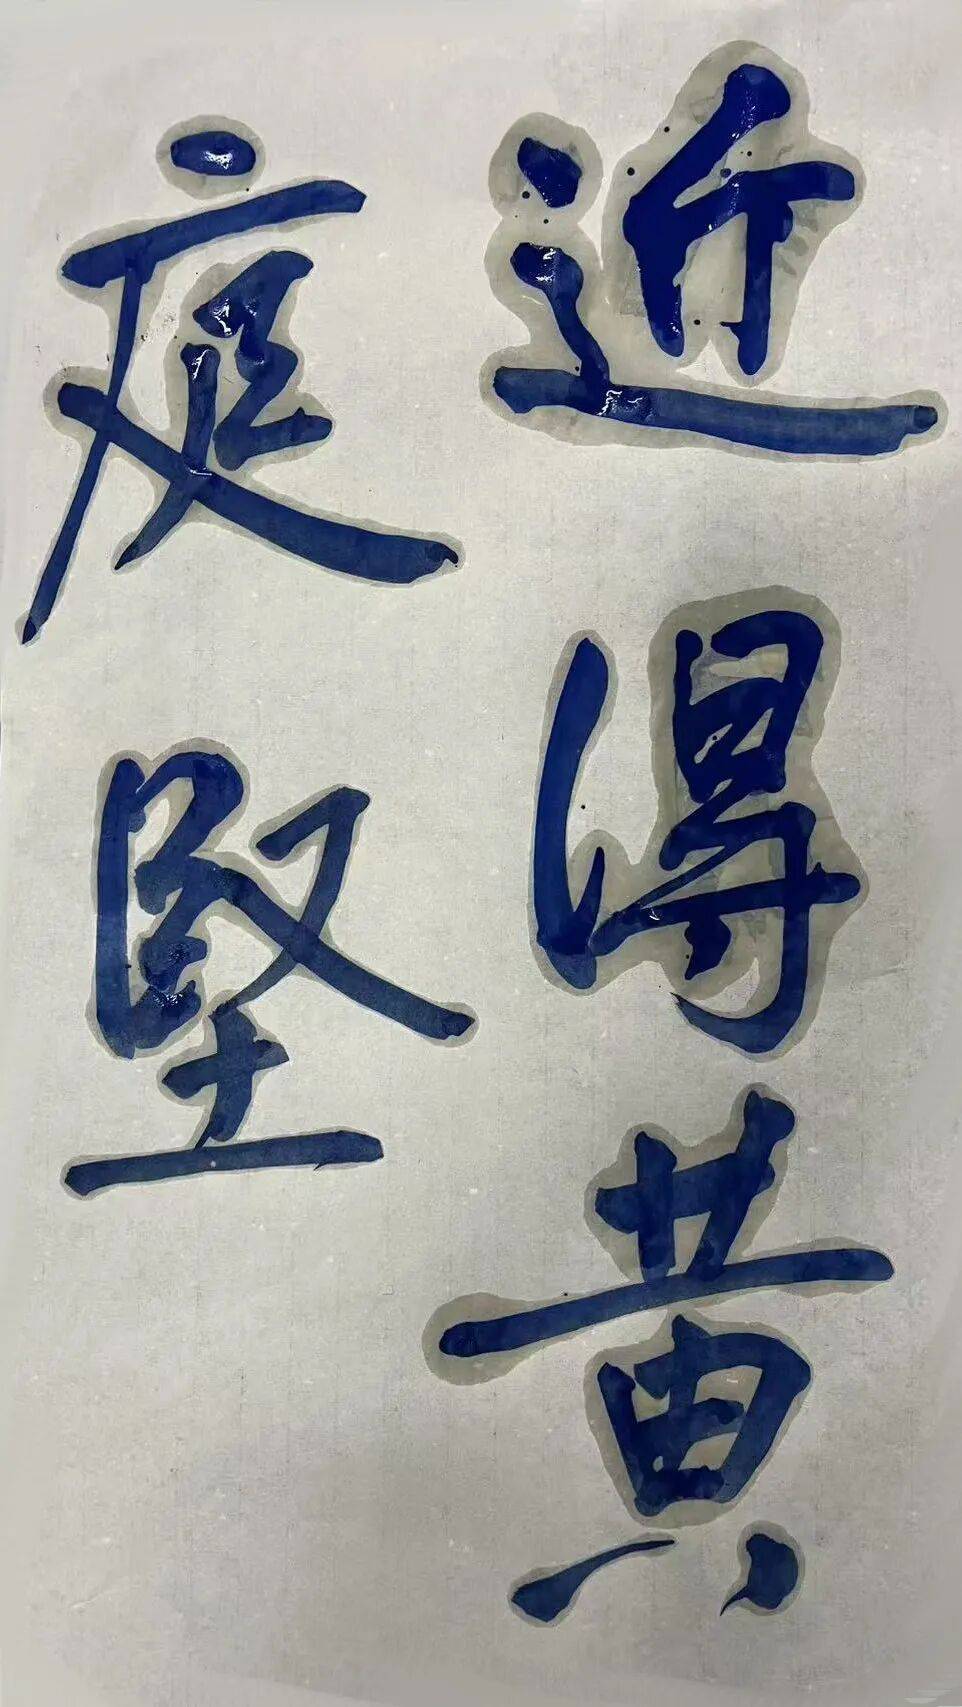 近得黄
庭坚